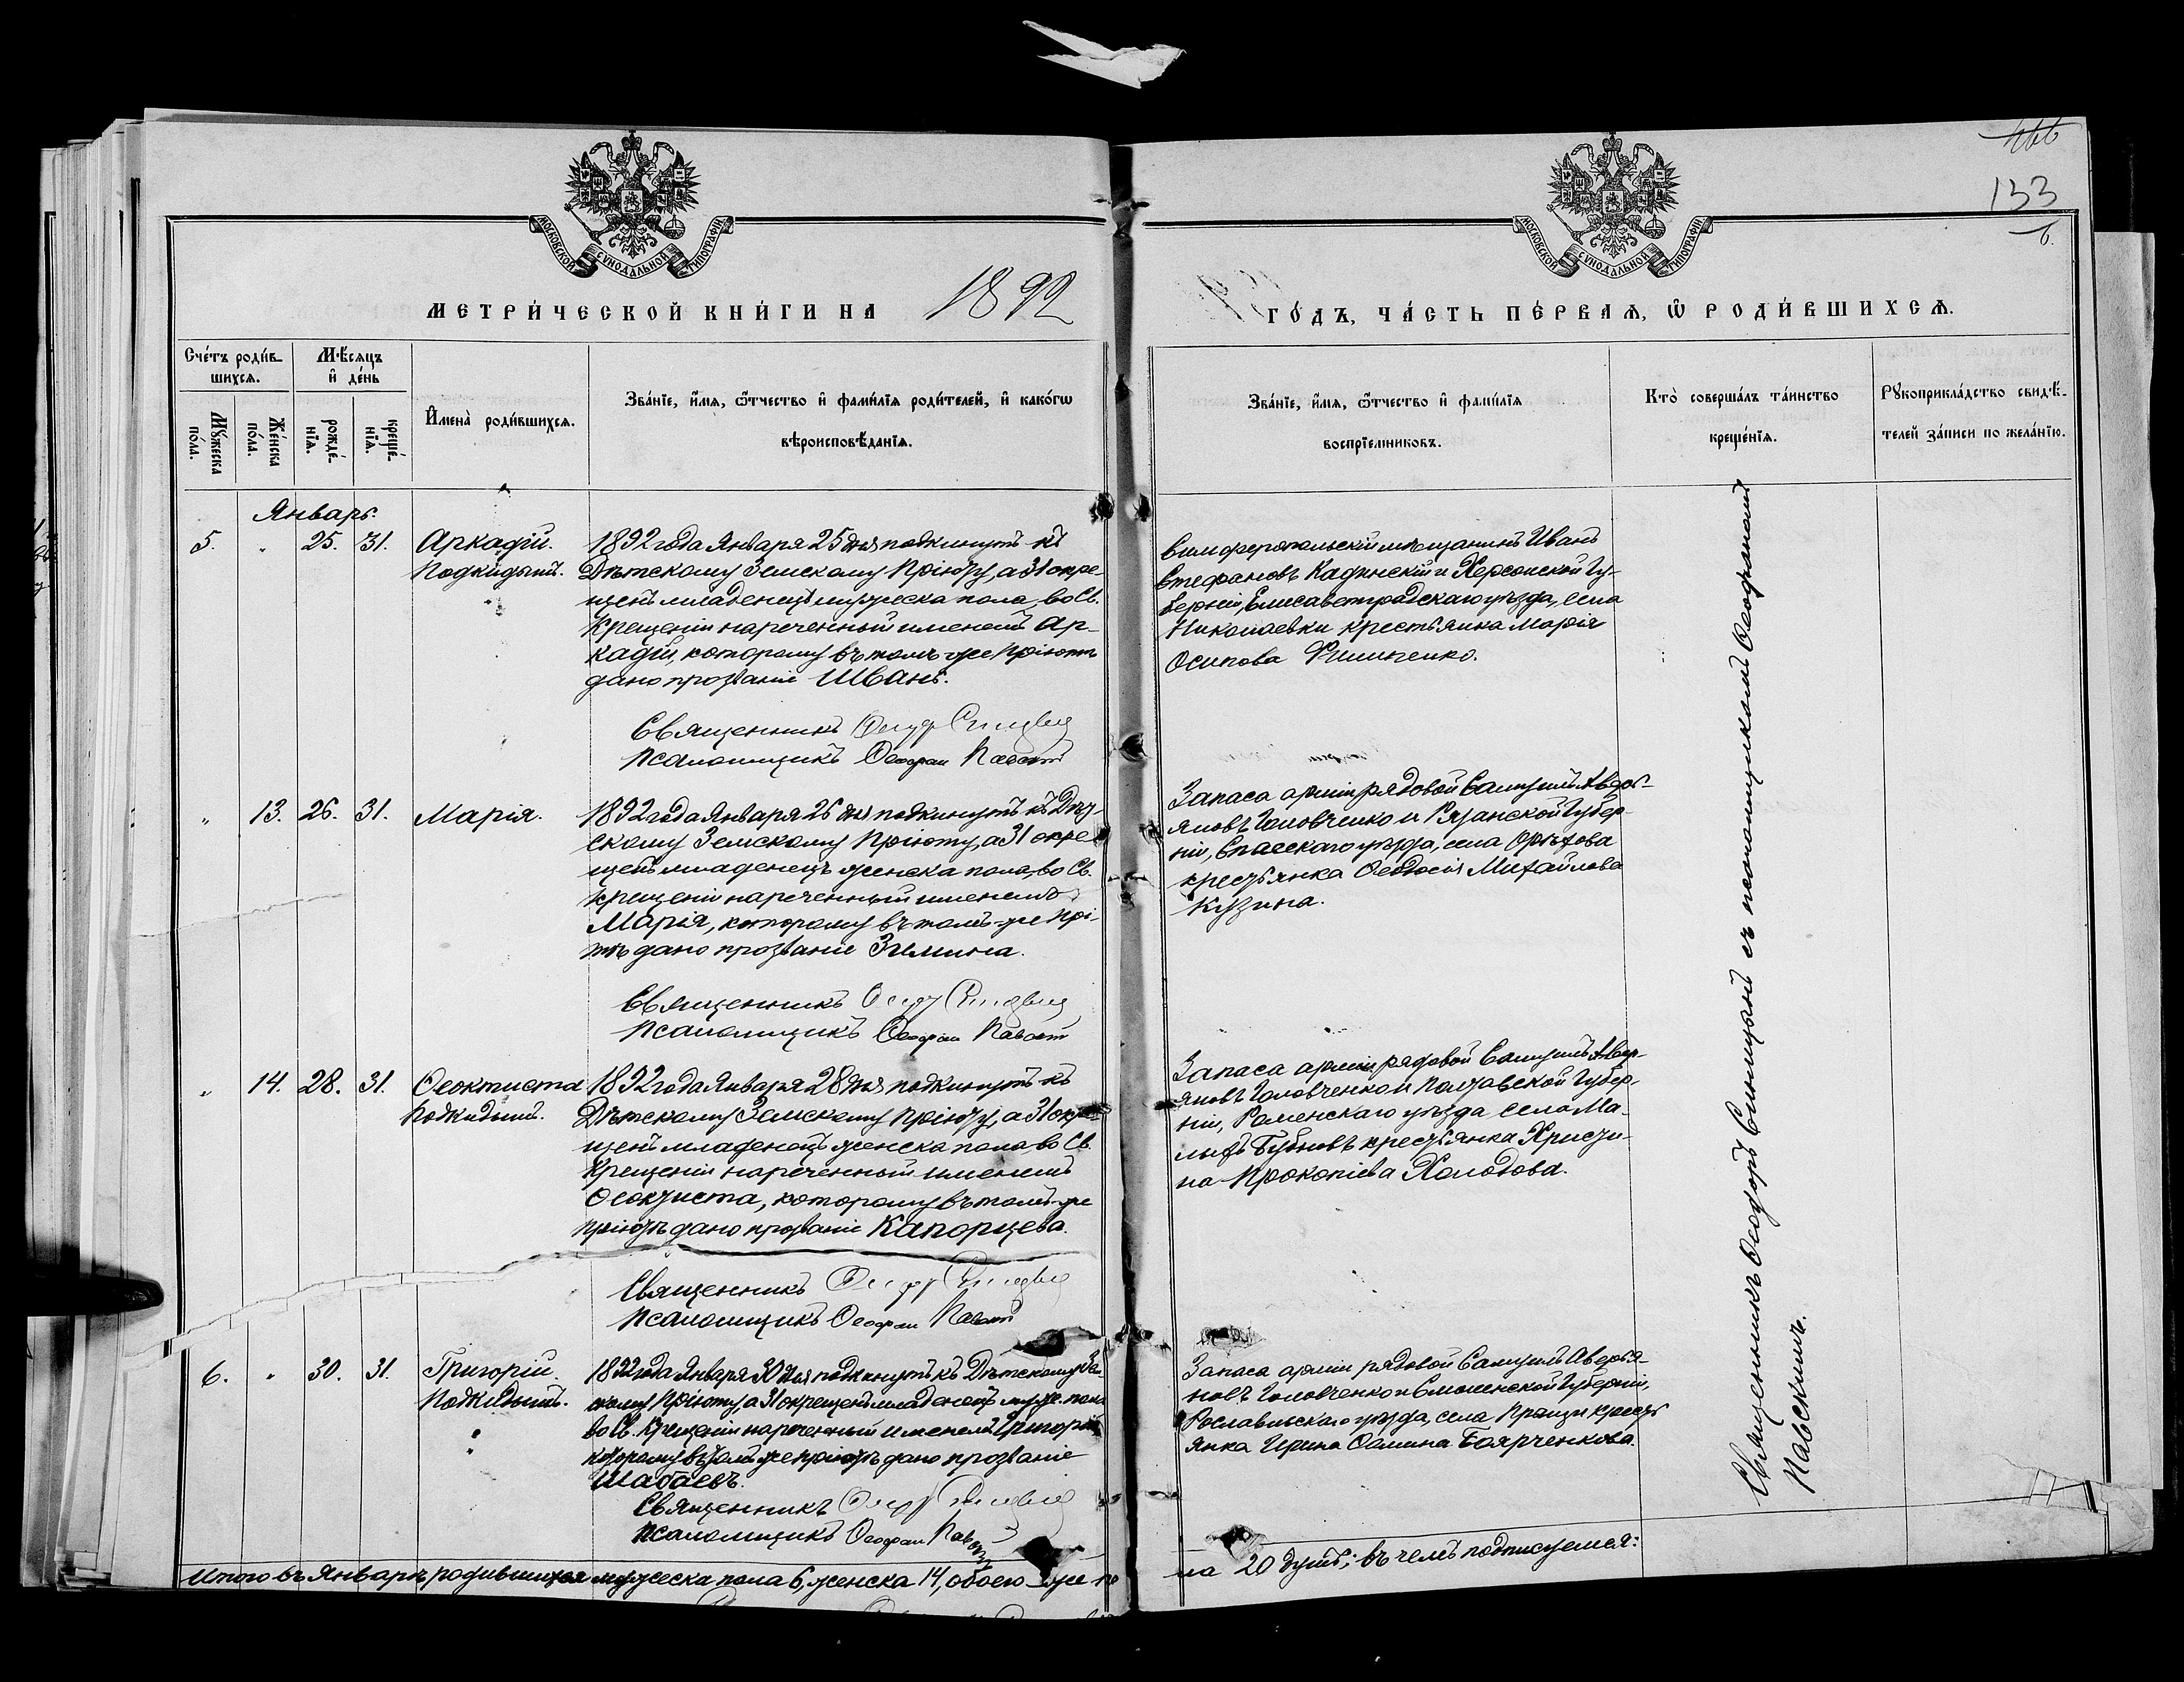 466
133
б.
МОСКОВСКОЙ СѴНОДАЛЬНОЙ ТИПОГРАФІИ
МОСКОВСКОЙ СѴНОДАЛЬНОЙ ТИПОГРАФІИ
МЕТРИ́ЧЕСКОЙ КНИ́ГИ НА 1892
ГО́ДЪ, ЧА́СТЬ ПЕ́РВАѦ, Ѡ҆ РОДИ́ВШИХСѦ.
Сче́тъ роди́в-
шихсѧ.
Мꙋ́жеска
по́ла.
Же́нска
по́ла.
Мѣ́сѧцъ
и҆ де́нь
рожде́-
нїѧ.
креще́-
нїѧ.
И҆мена̀ роди́вшихсѧ.
Зва́нїе, и҆́мѧ, ѻ҆́тчество и҆ фами́лїѧ роди́телей, и҆ како́гѡ
вѣроисповѣ́данїѧ.
Зва́нїе, и҆́мѧ, ѻ҆́тчество и҆ фами́лїѧ
воспрїе́мниковъ.
Кто̀ соверша́лъ та́инство
креще́нїѧ.
Рꙋкоприкла́дство свидѣ́-
телей за́писи по жела́нїю.
Январь.
5. " 25. 31. Аркадій.
Подкидышъ.
1892 года Января 25 дня подкинутъ къ
Дѣтскому Земскому Пріюту, а 31 окре-
щенъ младенецъ мужеска пола, во Св.
Крещеніи нареченный именемъ Ар-
кадій, которому въ томъ-же Пріютѣ
дано прозваніе Швань.
Священникъ
Псаломщикъ Ѳеофан
Симферопольскій мѣщанинъ Иванъ
Стефановъ Кадинскій и Херсонской Гу-
берніи, Елисаветградскаго уѣзда, села
Николаевки крестьянка Марія
Осипова
" 13. 26. 31. Марія.
1892 года Января 26 дня подкинутъ къ Дѣт-
скому Земскому Пріюту, а 31 окре-
щенъ младенецъ женска пола, во Св.
Крещеніи нареченный именемъ
Марія, которому въ томъ-же Прі-
тѣ дано прозваніе Зимина.
Священникъ
Псаломщикъ Ѳеофан
Запаса арміи рядовой Самуилъ Аверь-
яновъ Головченко и Рязанской Губер-
ніи, Спасскаго уѣзда, села Орѣхова
крестьянка Ѳеодосія Михайлова
Кузина.
" 14. 28. 31. Ѳеоктиста
Подкидышъ.
1892 года Января 28 дня подкинутъ къ
Дѣтскому Земскому Пріюту, а 31 окре-
щенъ младенецъ женска пола, во Св.
Крещеніи нареченный именемъ
Ѳеоктиста, которому въ томъ-же
Пріютѣ дано прозваніе Капорцева.
Священникъ
Псаломщикъ Ѳеофан
Запаса арміи рядовой Самуилъ Авер-
яновъ Головченко и Полтавской Губер-
ніи, Роменскаго уѣзда села Ма-
лыхъ Бубновъ крестьянка Христи-
на Прокопіева Холодова.
6. " 30. 31. Григорій.
Подкидышъ.
1892 года Января 30 дня подкинутъ къ Дѣтскому Зем-
скому Пріюту, а 31 окрещенъ младенецъ муже. пола
во Св. Крещеніи нареченный именемъ Григорій
которому въ томъ же пріютѣ дано прозваніе
Шабаевъ.
Священникъ
Псаломщикъ Ѳеофан
Запаса арміи рядовой Самуилъ Аверья-
новъ Головченко и Смоленской Губерніи,
Рославльскаго уѣзда, села крестъ
янка Ирина Ѳомина Боярченкова.
Священникъ Ѳеодоръ Синицынъ съ псаломщикомъ Ѳеофаномъ
Павскимъ.
Итого въ Январѣ родившихся мужеска пола 6, женска 14, обоего-же по
ла 20 душъ; въ чемъ подписуемся: